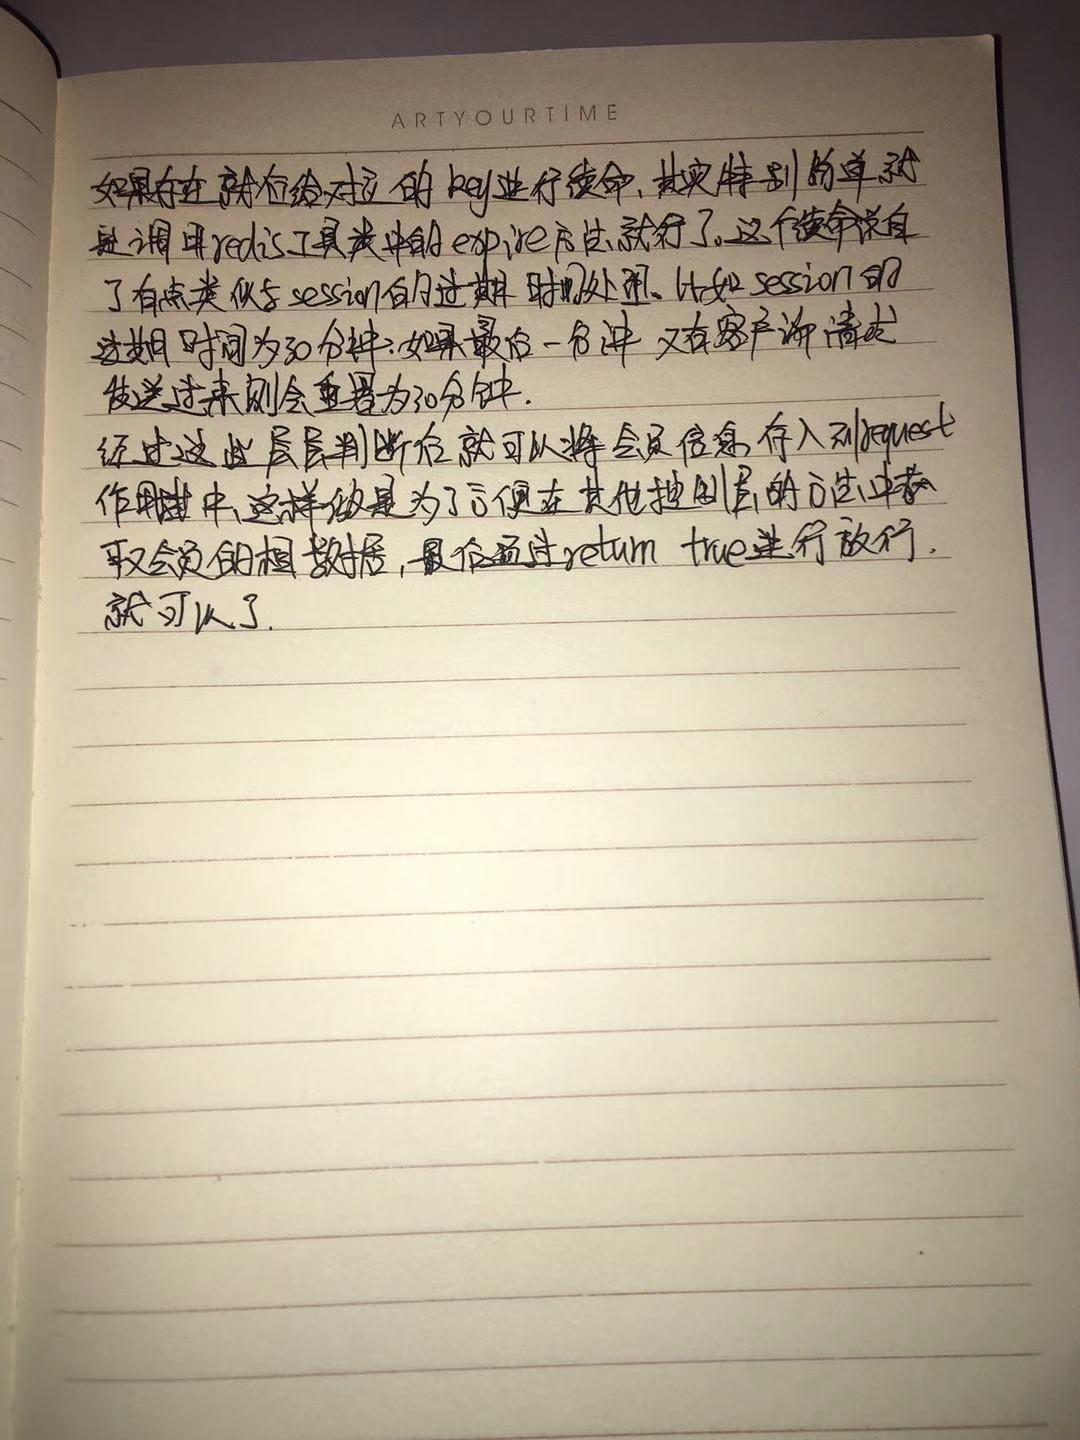 ARTYOURTIME
如果存在就会给对应的key进行续命,其实特别简单就
是调用redis工具类中的expire方法就行了。这个续命说白
了有点类似与session的过期时间处理。比如session的
过期时间为30分钟:如果最后一分钟又有客户端请求
发送过来则会重置为30分钟.
经过这些层层判断后就可以将会员信息存入到request
作用域中、这样做是为了方便在其他控制层的方法中获
取会员的相数据,最后通过return true进行放行.
就可以了.